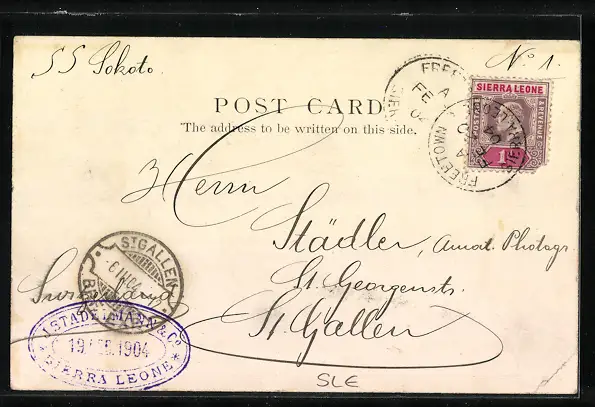 SS Sokoto.
No 1.
POST CARD
The address to be written on this side.
SIERRA LEONE
POSTAGE & REVENUE
FREETOWN
SIERRA LEONE
Herrn
Städler, Amat. Photogr.
St. Georgenstr.
St. Gallen
Switzerland
ST GALLEN
STADELMANN & Co
19 FEB. 1904
SIERRA LEONE
SLE